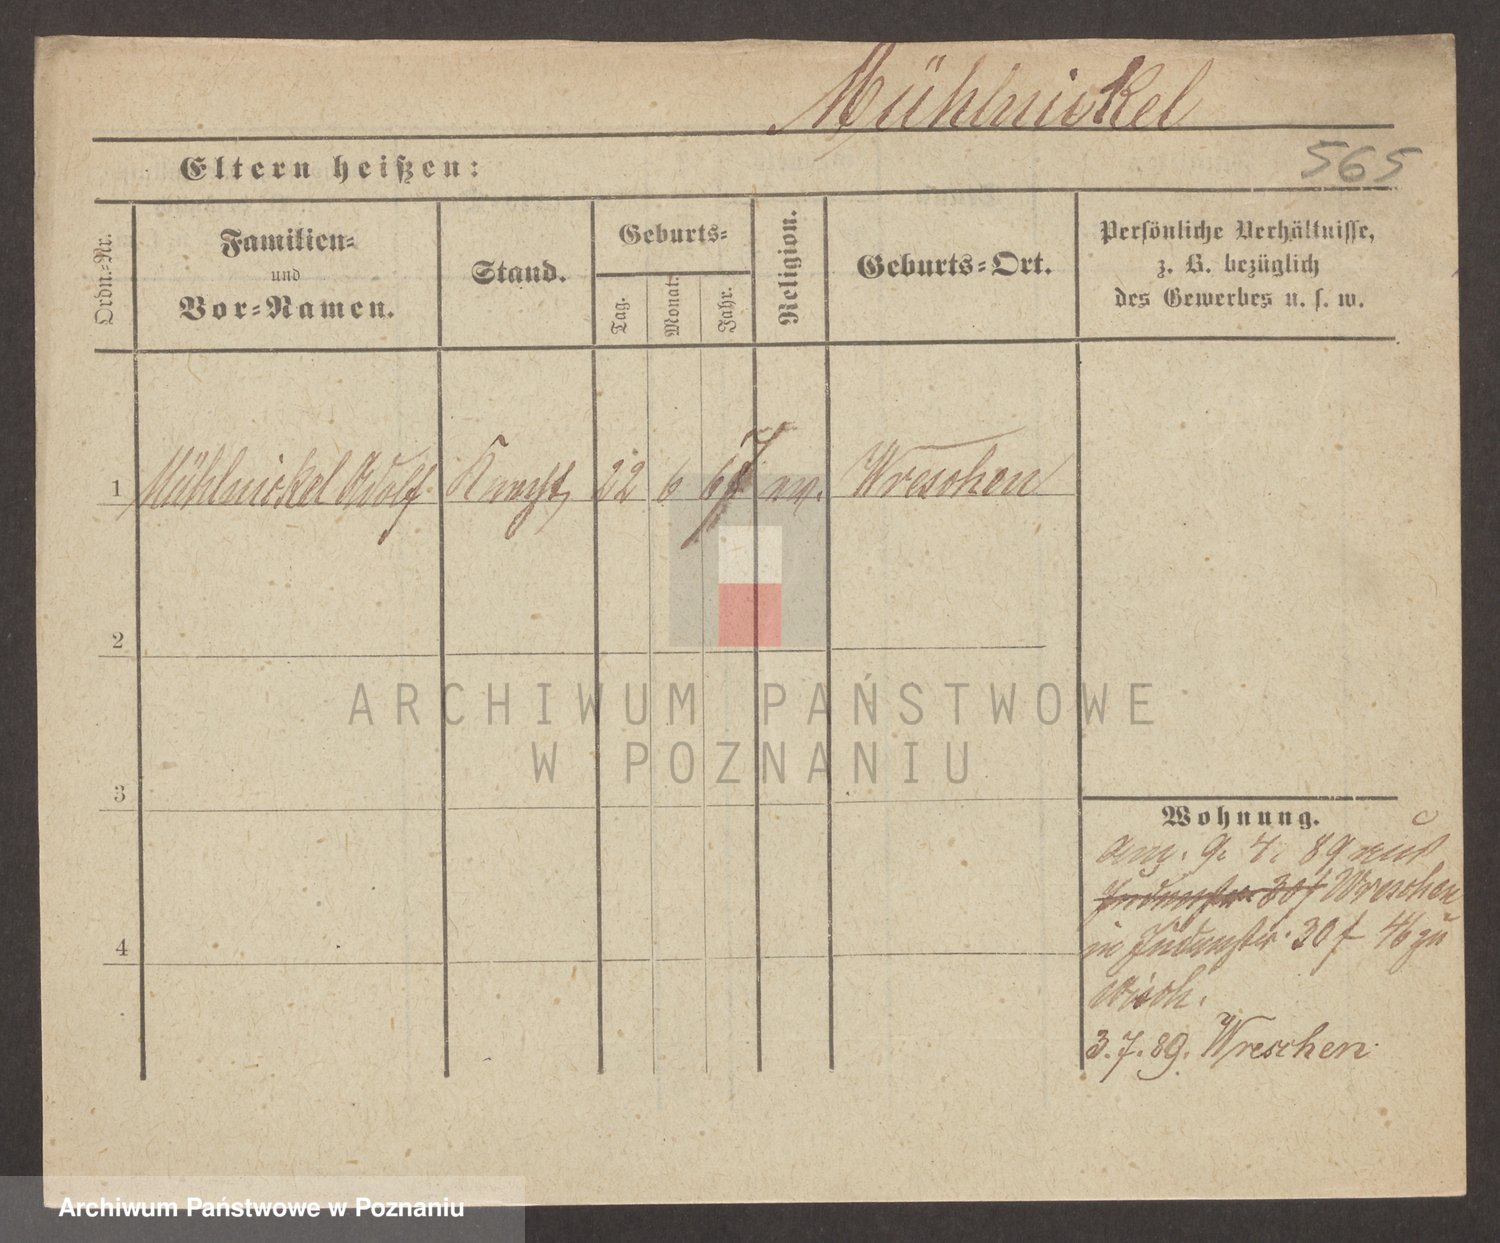 Mühlnickel
Eltern heißen:
565
Ordn.-Nr.
Familien-
und
Vor-Namen.
Stand.
Geburts-
Tag.
Monat.
Jahr.
Religion.
Geburts-Ort.
Persönliche Verhältnisse,
z. B. bezüglich
des Gewerbes u. s. w.
1 Mühlnickel Adolf Knecht 22 6 67 ev. Wreschen
2
3
4
Wohnung.
Anz. 9. 4. 89 aus
Wreschen
in Judenstr. 30 f
3.7.89. Wreschen
ARCHIWUM PAŃSTWOWE
W POZNANIU
Archiwum Państwowe w Poznaniu